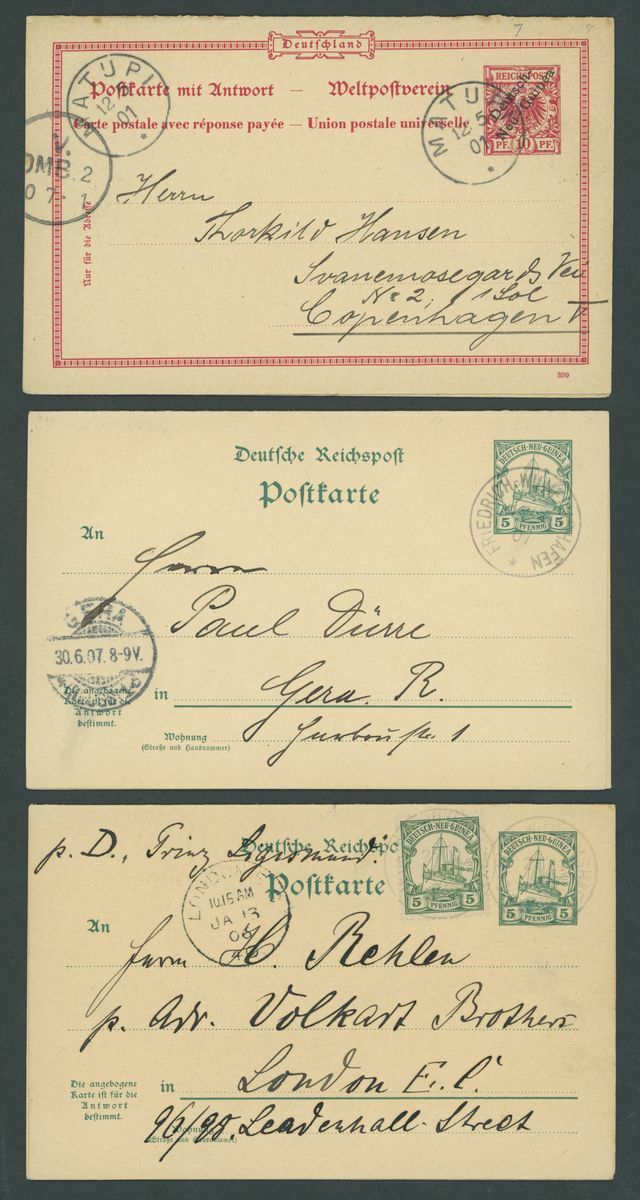 7
Deutschland
Postkarte mit Antwort — Weltpostverein
Carte postale avec réponse payée — Union postale universelle
REICHSPOST
PF. 10 PF.
Deutsch-
Neu-Guinea
MATUPI
12/5
01
*
MATUPI
12/5
01
*
V.
2
1
Nur für die Adresse
Herrn
Thorkild Hansen
Svanemosegards Vei
No 2, 1 Sal
Copenhagen V
399
Deutsche Reichspost
Postkarte
DEUTSCH-NEU-GUINEA
5 PFENNIG 5
FRIEDRICH-WILHELMSHAFEN
07
*
An
Herrn
Paul Dürre
GERA
30.6.07. 8-9V.
Die angebogene
Karte ist für die
Antwort
bestimmt.
in Gera. R.
Wohnung
(Straße und Hausnummer)
1
p. D. „Prinz Sigismund"
Deutsche Reichspo
Postkarte
DEUTSCH-NEU-GUINEA
5 PFENNIG 5
DEUTSCH-NEU-GUINEA
5 PFENNIG 5
LONDON
10.15 AM
JA 13
06
An
Herrn H. Rehlen
p. Adr. Volkart Brothers
Die angebogene
Karte ist für die
Antwort
bestimmt.
in London E. C.
96/98, Leadenhall-Street
Wohnung
(Straße und Hausnummer)